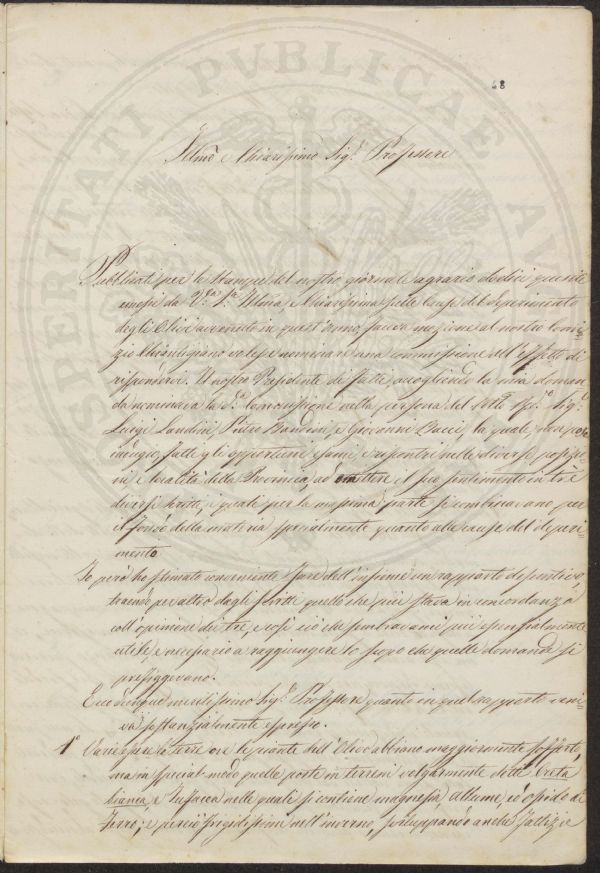 48
Illmo e Chiarissimo Sigr. Professore
Pubblicati per le stampe del nostro giornale agrario dodici quesiti
emessi da V.ra Sa. Illma e Chiarissima sulle cause del deperimento
degli Olivi avvenuto in quest'anno, faceva mozione al nostro Comi-
zio Chiantigiano volesse nominare una commissione all'effetto di
rispondervi. Il nostro Presidente di fatti, accogliendo la mia doman-
da nominava la da. Commissione nella persona del Sigr.
Luigi Landini, Pietro Bandini, e Giovanni Bacci, la quale, senza
indugio, fatti gli opportuni esami, e riscontri nelle diverse posizio-
ni e località della Provincia, ad emettere il suo sentimento in tre
diversi scritti, i quali per la massima parte si combinavano per
il fondo della materia specialmente quanto alle cause del deperi-
mento
Io però ho stimato conveniente fare dell'insieme un rapporto
traendo per altro dagli scritti quello che più stava in concordanza
coll'opinione dei tre, e così ciò che sembravami più essenzialmente
utile, e necessario a raggiungere lo scopo che quelle domande si
prefiggevano.
Ecco dunque meritissimo Sigr. Professore quanto in quel rapporto veni-
va sostanzialmente espresso.
1° Varie sono le terre ove le piante dell'Olivo abbiano maggiormente sofferto,
ma in special modo quelle poste in terreni volgarmente detti Creta
bianca, e Tufacea nelle quale si contiene magnesia, allume, ed ossido di
Ferro; e perciò frigidissimi nell'inverno, sviluppando anche